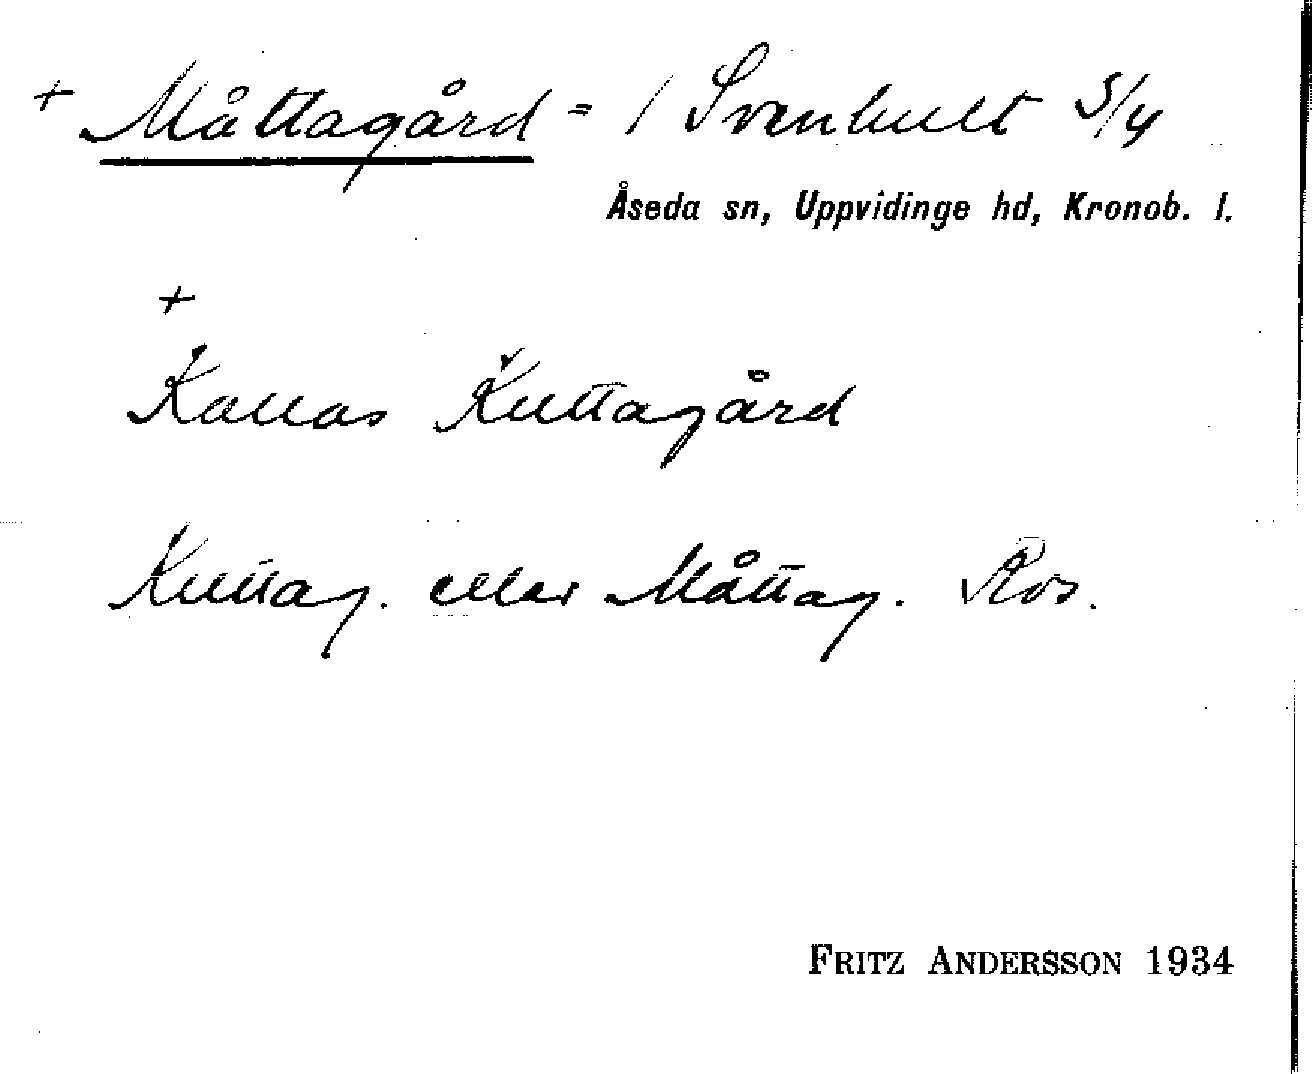 + Måttagård = / Svenhult 3/4
Åseda sn, Uppvidinge hd, Kronob. l.
+
Kallas Kuttagård
Kuttag. eller Måttag. Ros.
FRITZ ANDERSSON 1934